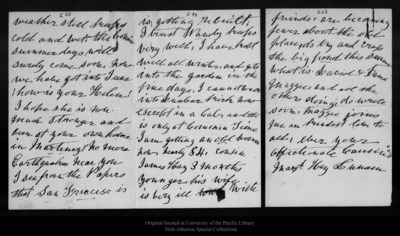 weather still keeps
cold and wet the
summer days will
surely come soon, now
we have got into June
how is your Helen?
I hope she is now
much stronger and
been at your own home
in Martinez no more
Earthquakes near you
I see from the Papers
that San Francisco is
is getting rebuilt,
I trust Wanda keeps
very well, I have held
well all winter and gets
into the garden in the
fine days. I cannot
except in a cab, and she
is only at Communion Time
I am getting an old woman
now nearly 84. Cousin
James Hay 3 months
younger his wife
is very ill with
friends are becoming
fewer about the old
place
the big front this summer
what is David &
Maggie and all the
others doing do write
soon. Maggie joins
me in kindest love to
all, ever your
affectionate Cousin
Margt Hay Lunam
Original located at University of the Pacific Library
Holt-Atherton Special Collections